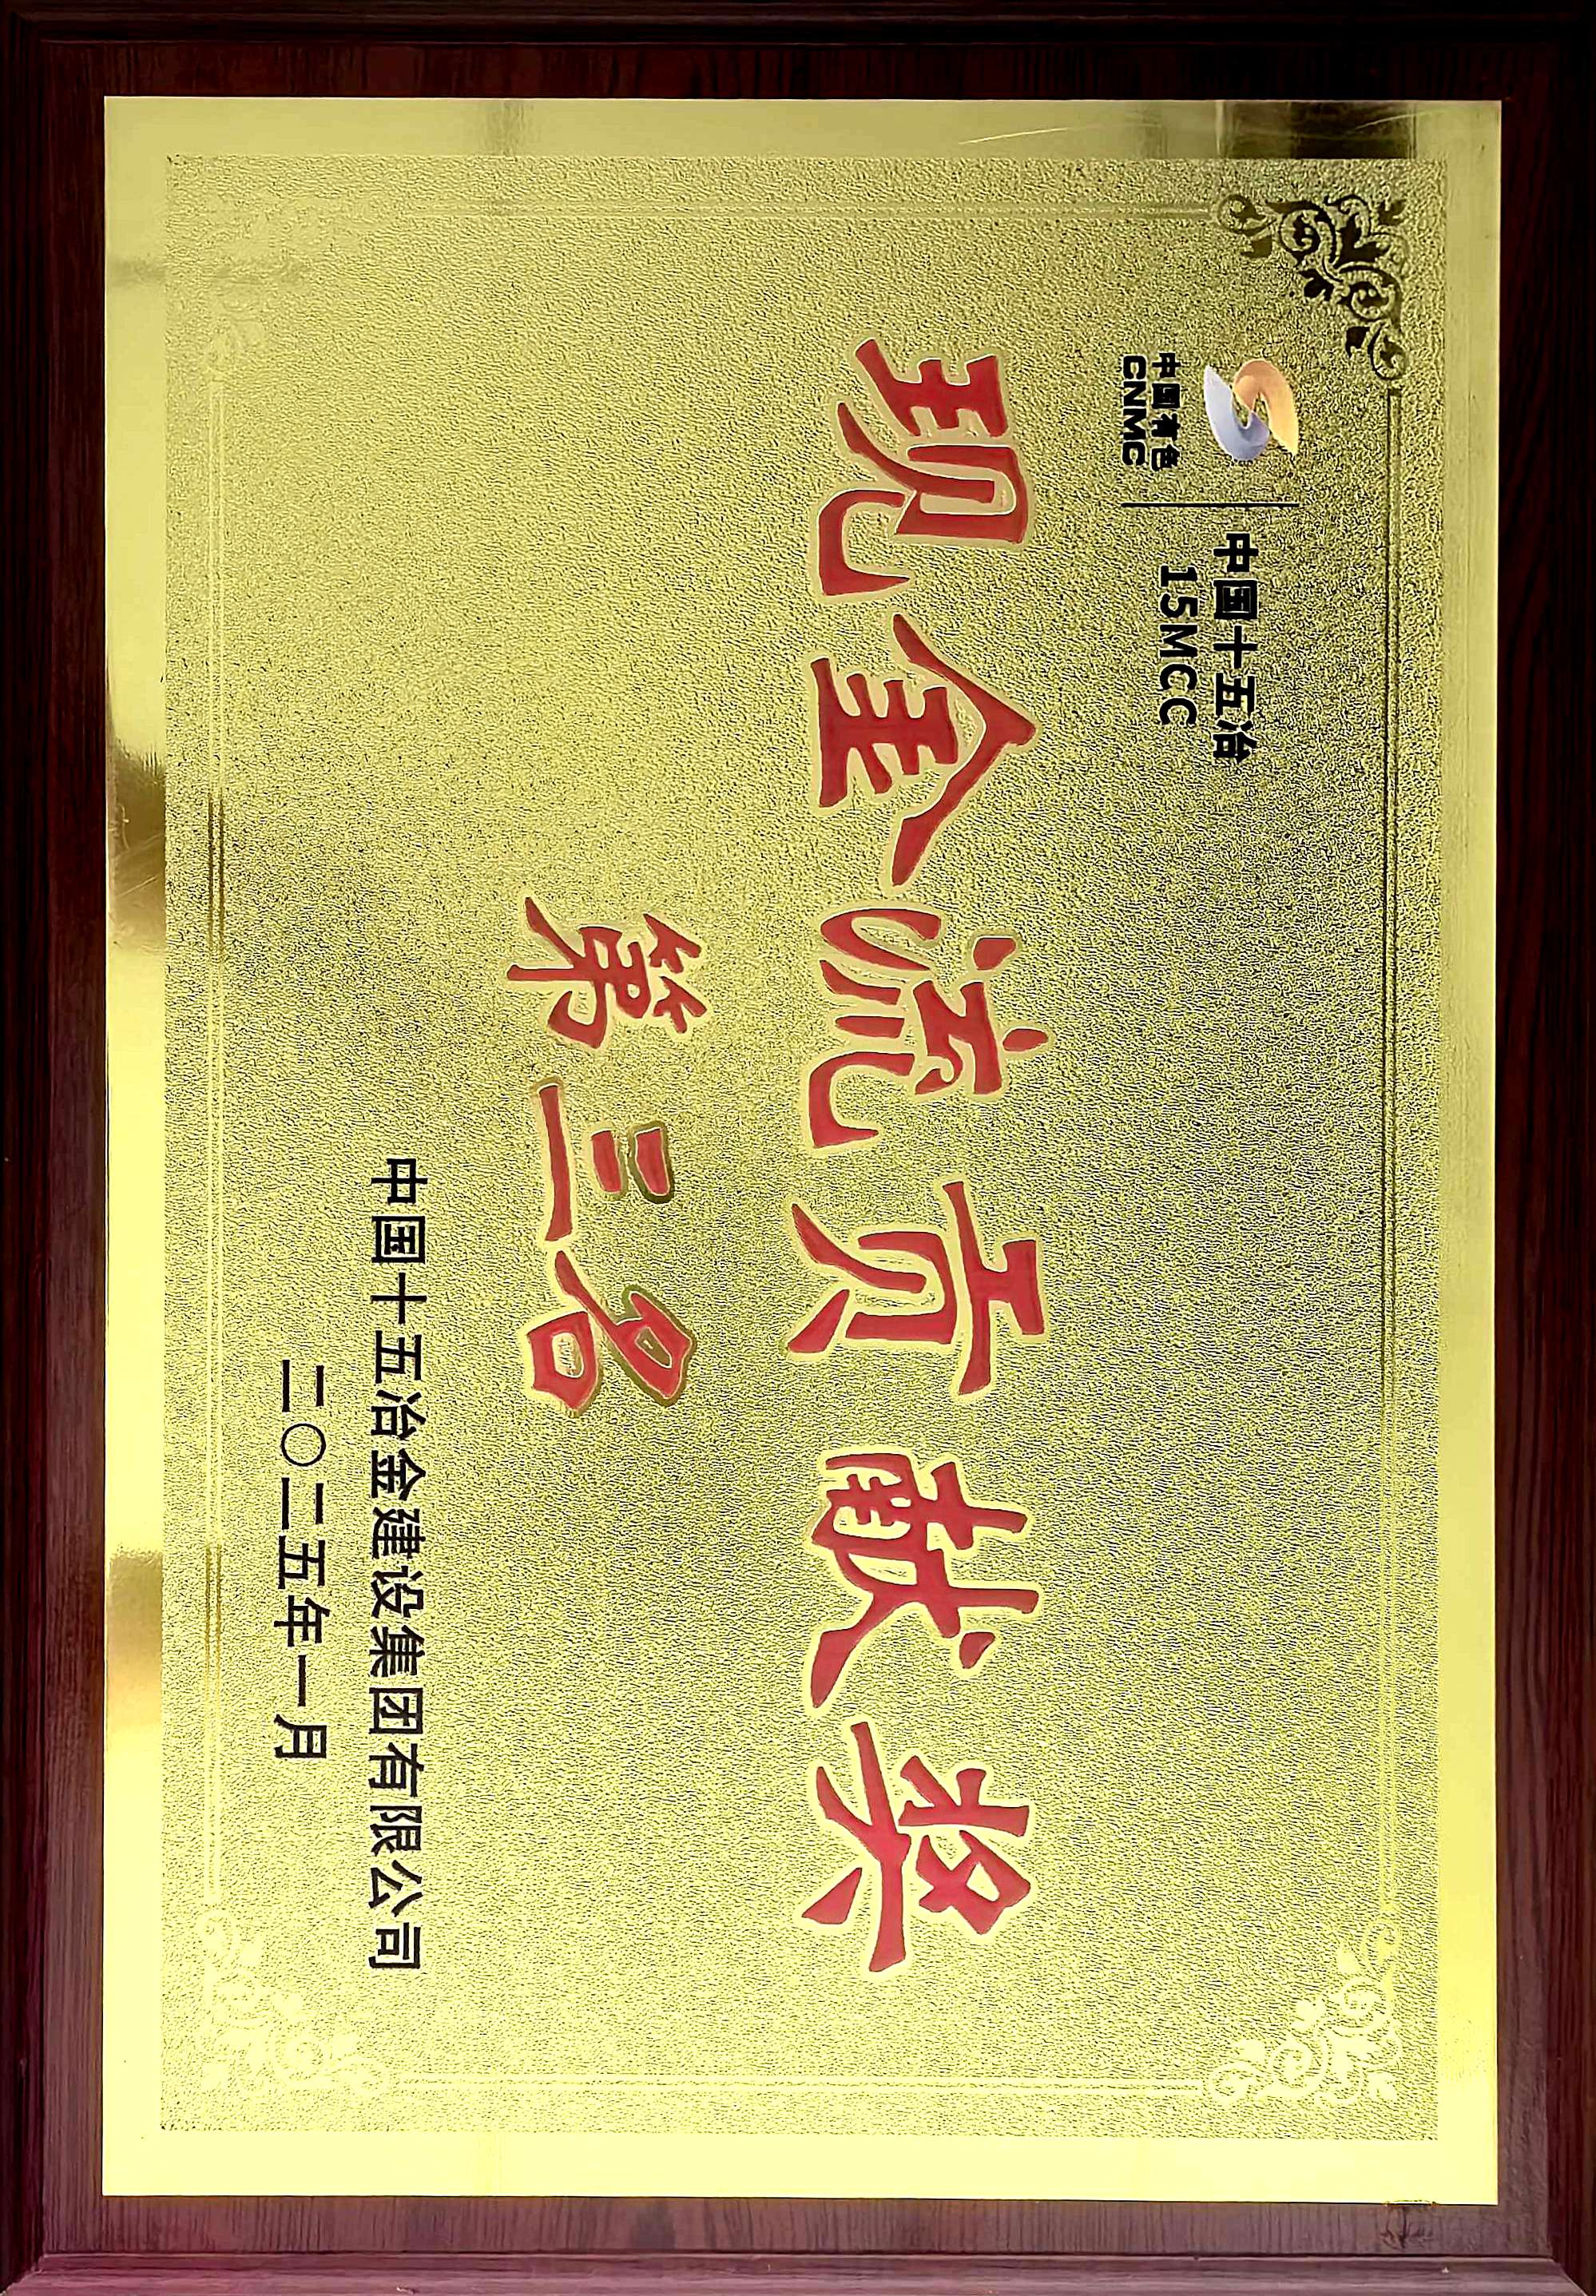 中国有色
CNMC
中国十五冶
15MCC
现金流贡献奖
第三名
中国十五冶金建设集团有限公司
二〇二五年一月